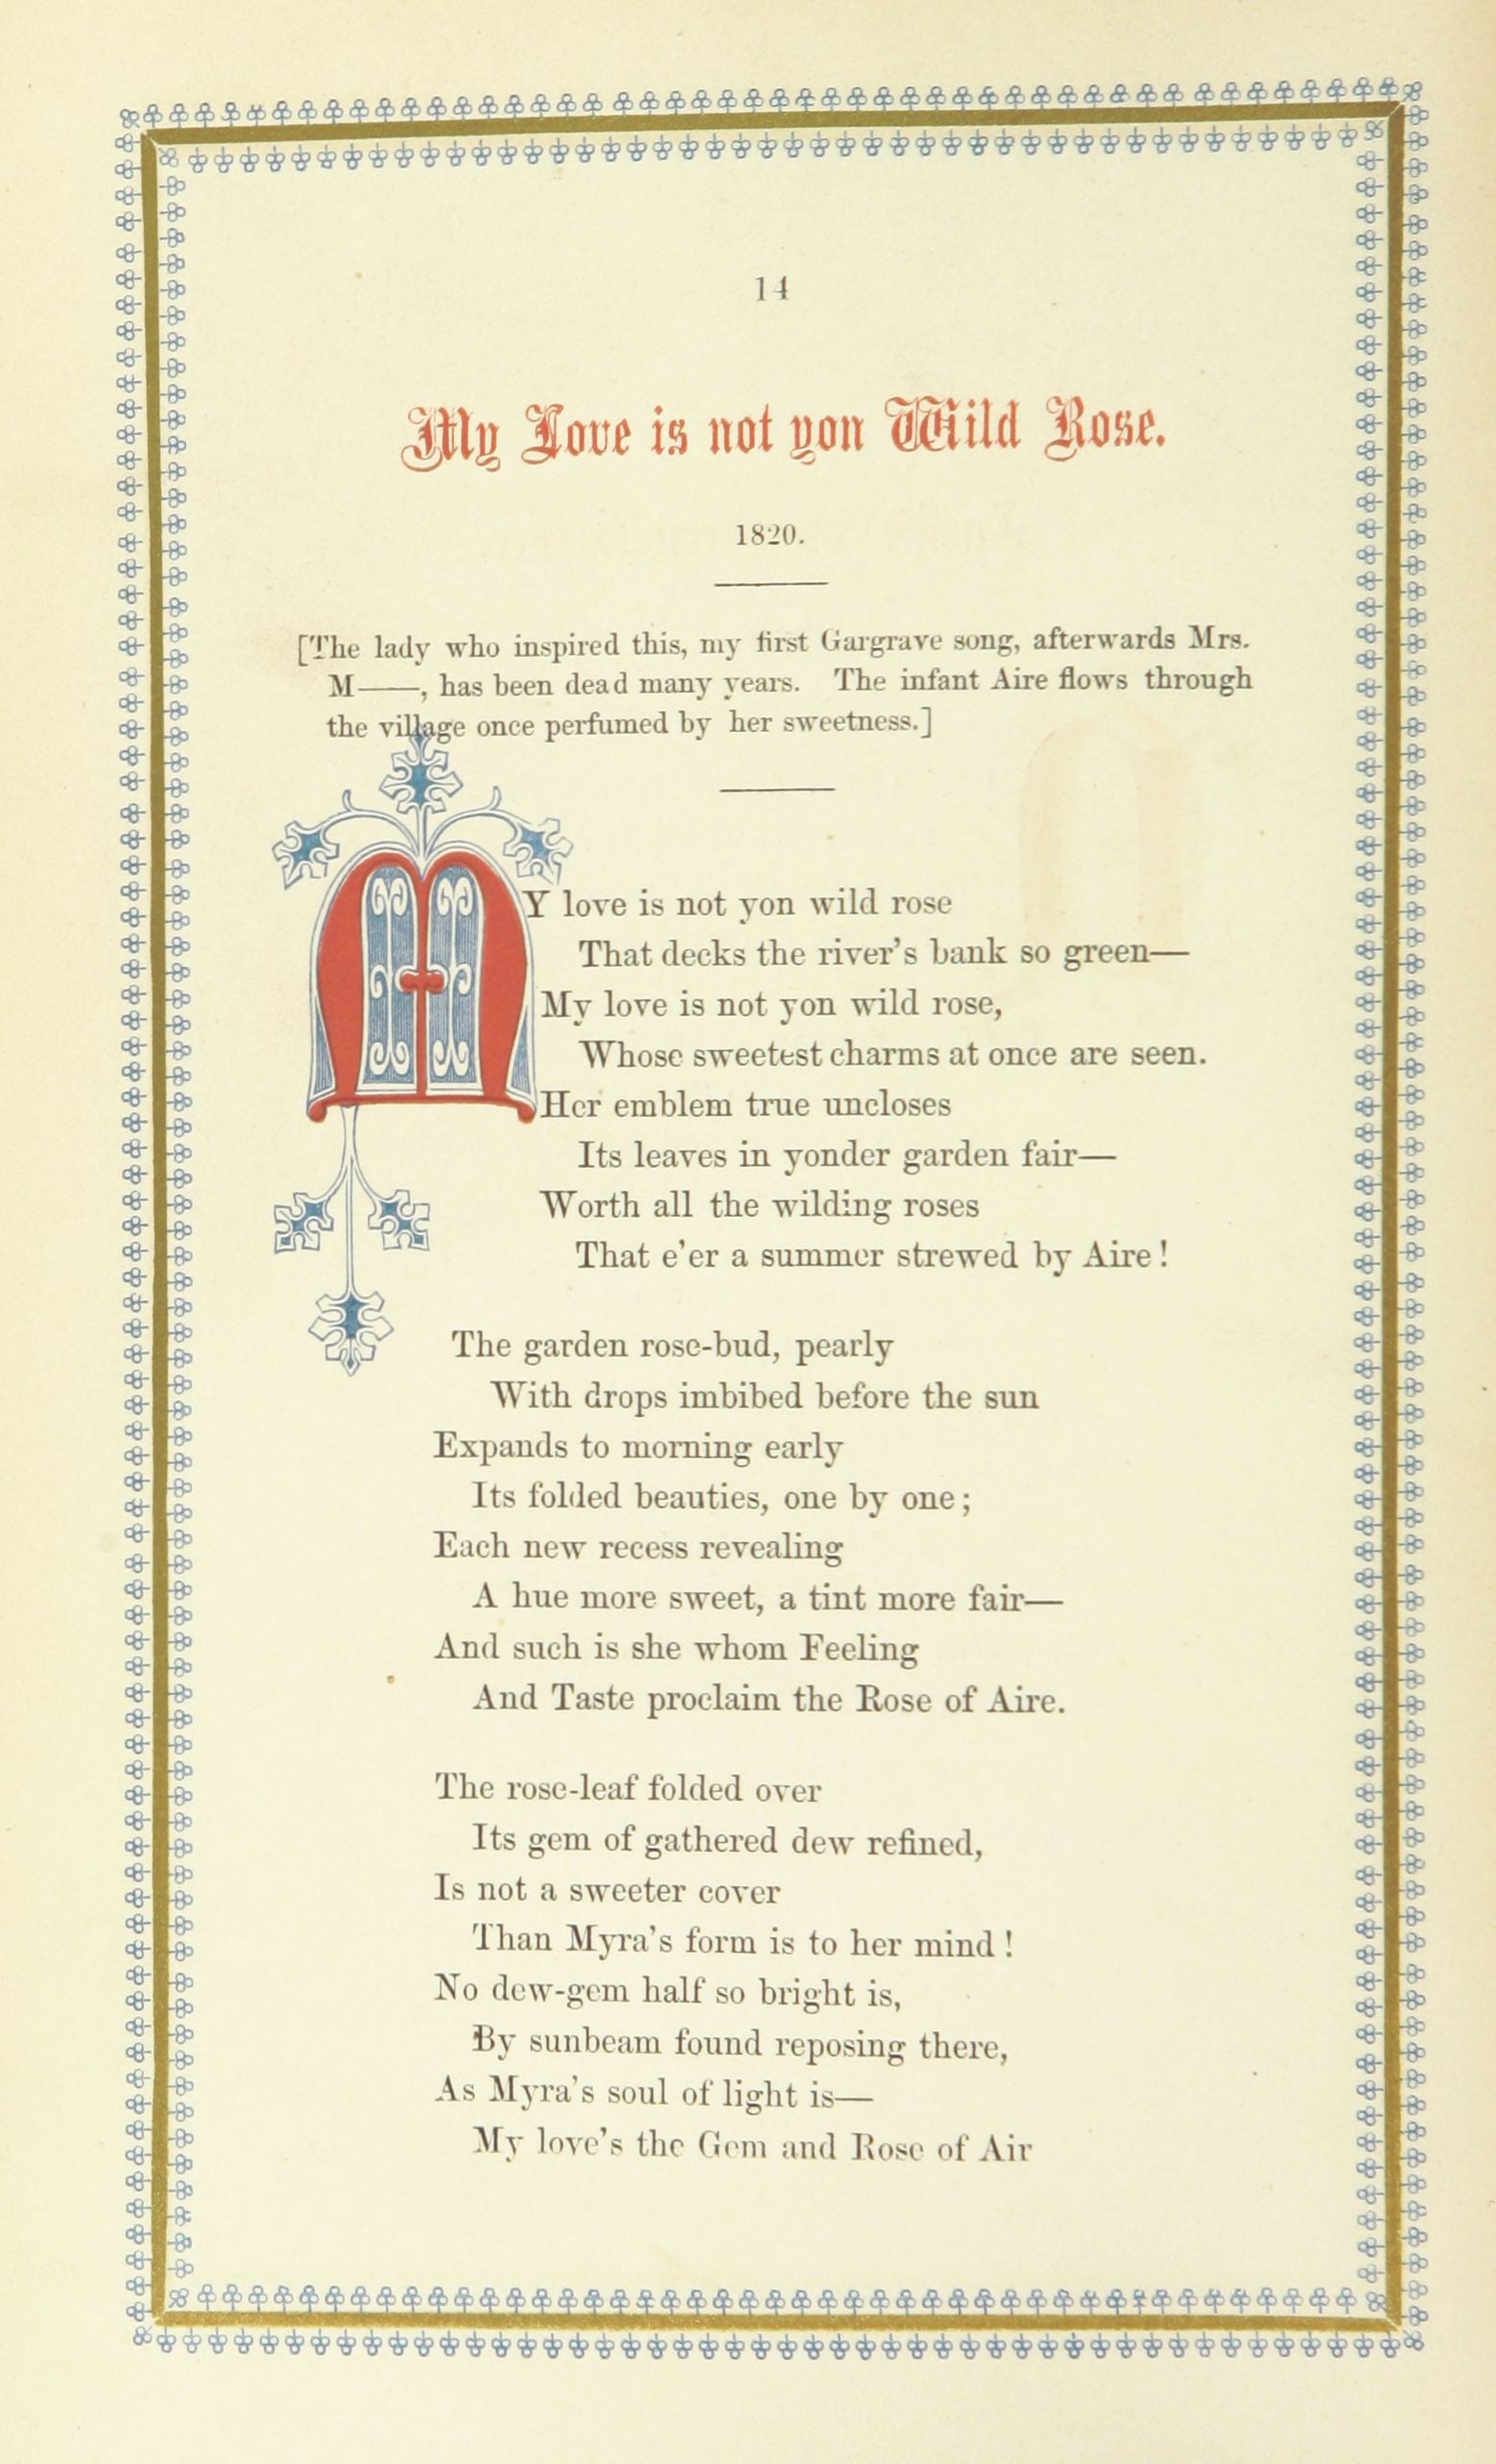 14
My Love is not yon Wild Rose.
1820.
[The lady who inspired this, my first Gargrave song, afterwards Mrs.
M——, has been dead many years. The infant Aire flows through
the village once perfumed by her sweetness.]
MY love is not yon wild rose
That decks the river's bank so green—
My love is not yon wild rose,
Whose sweetest charms at once are seen.
Her emblem true uncloses
Its leaves in yonder garden fair—
Worth all the wilding roses
That e'er a summer strewed by Aire!
The garden rose-bud, pearly
With drops imbibed before the sun
Expands to morning early
Its folded beauties, one by one;
Each new recess revealing
A hue more sweet, a tint more fair—
And such is she whom Feeling
And Taste proclaim the Rose of Aire.
The rose-leaf folded over
Its gem of gathered dew refined,
Is not a sweeter cover
Than Myra's form is to her mind!
No dew-gem half so bright is,
By sunbeam found reposing there,
As Myra's soul of light is—
My love's the Gem and Rose of Air